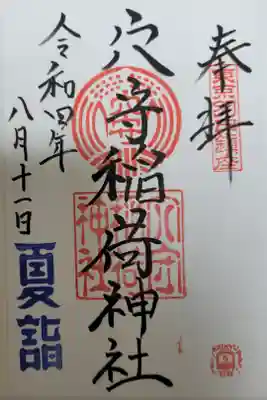 奉拝
穴守稲荷神社
令和四年
八月十一日
夏詣
KEIKYU